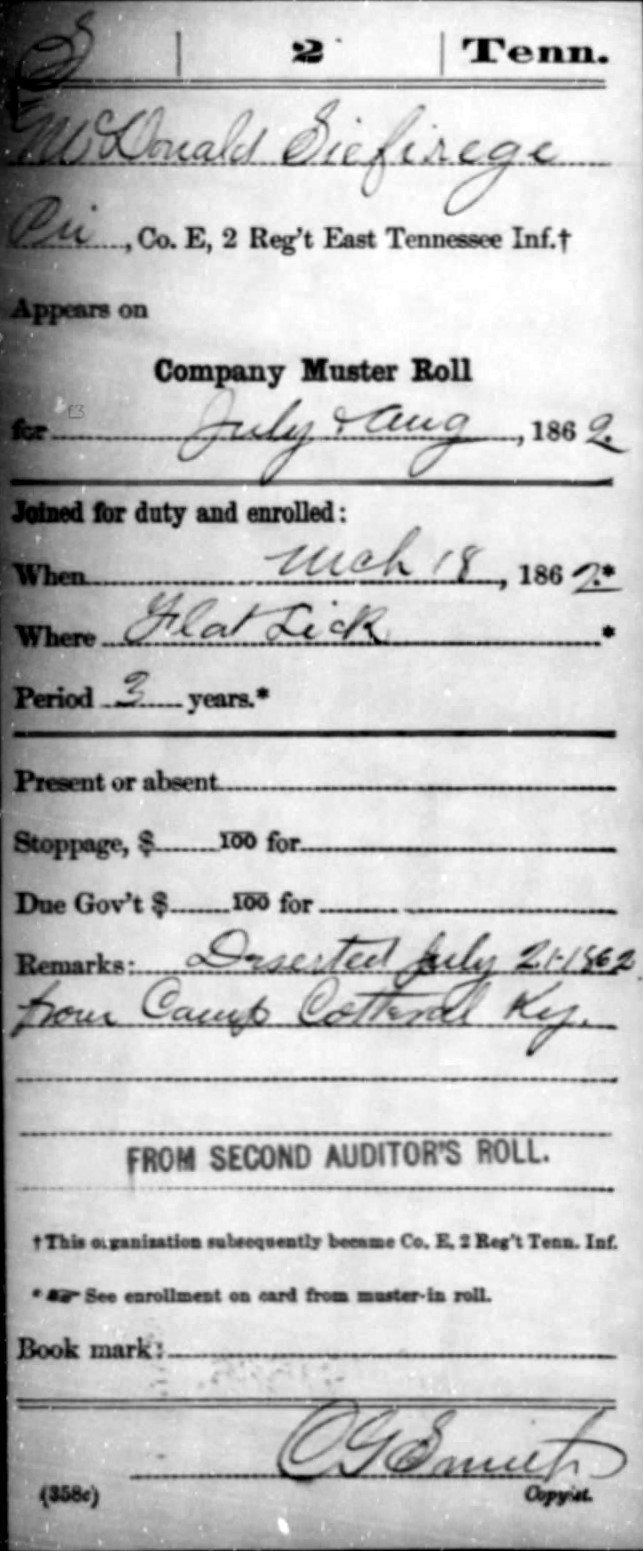 S | 2 | Tenn.
McDonald Siefirege
Pri, Co. E, 2 Reg't East Tennessee Inf.†
Appears on
Company Muster Roll
for July & Aug, 1862.
Joined for duty and enrolled:
When Mch 18, 1862.*
Where Flat Lick *
Period 3 years.*
Present or absent
Stoppage, $ 100 for
Due Gov't $ 100 for
Remarks: Deserted July 21-1862
from Camp Cotteral Ky.
FROM SECOND AUDITOR'S ROLL.
†This organization subsequently became Co. E, 2 Reg't Tenn. Inf.
*☞ See enrollment on card from muster-in roll.
Book mark:
O G Smith
(358c) Copyist.